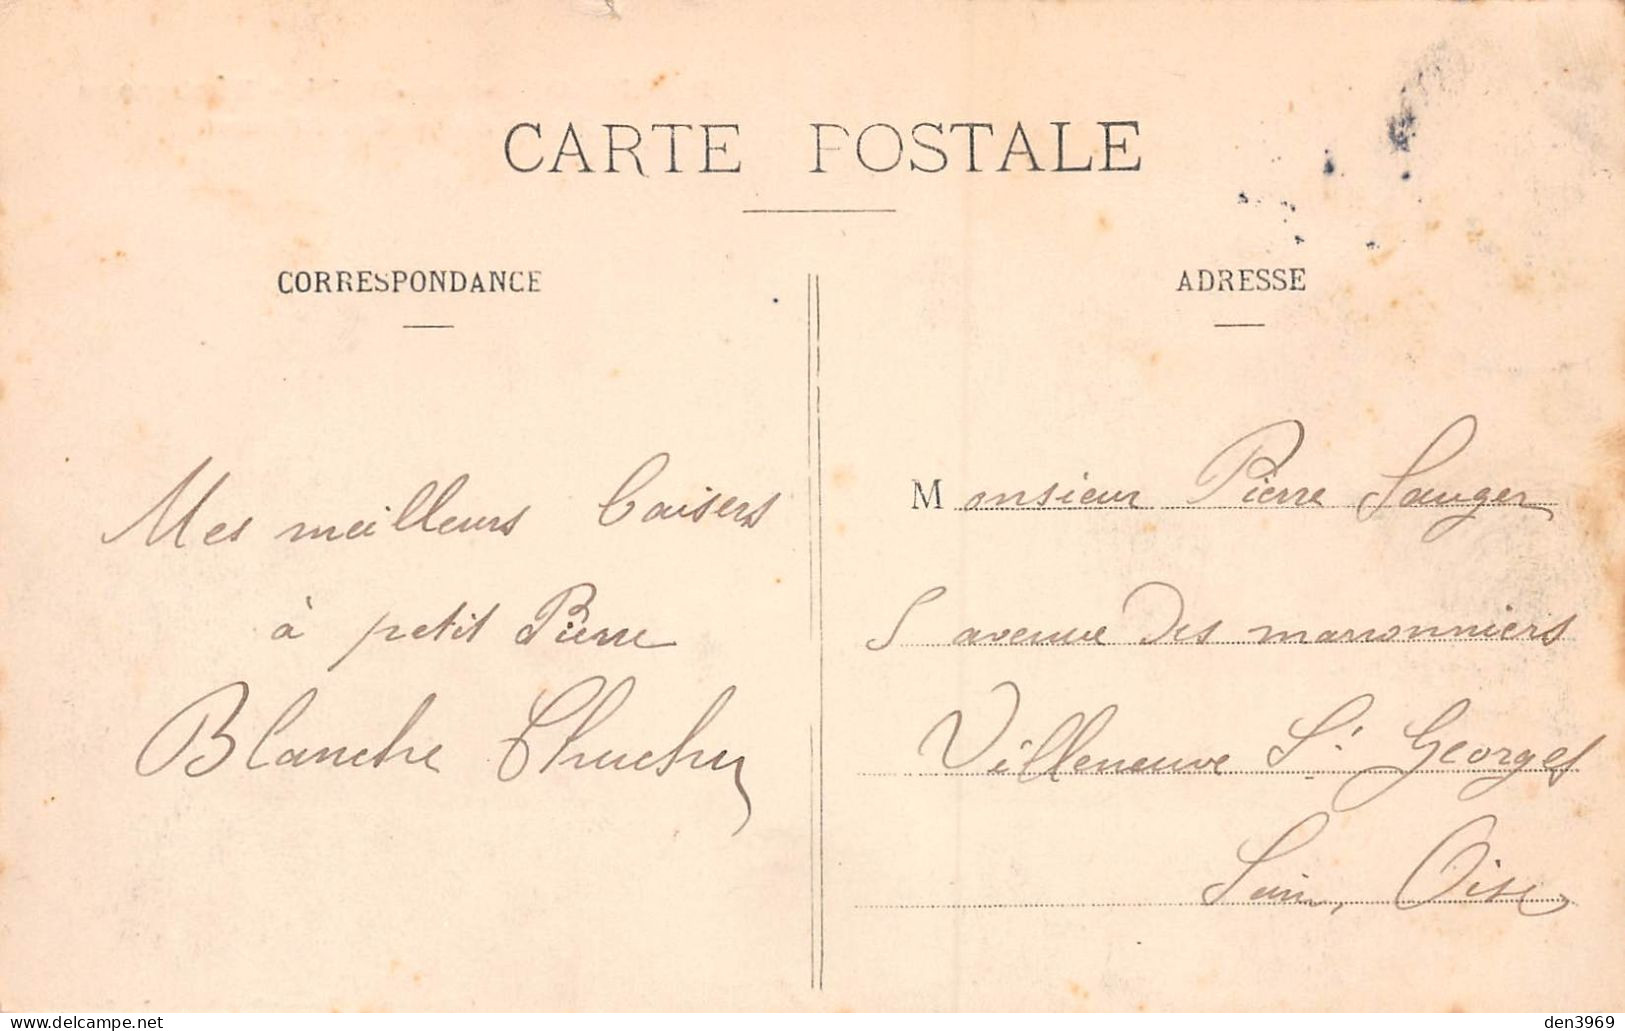 CARTE POSTALE
CORRESPONDANCE
ADRESSE
Mes meilleurs baisers
à petit Pierre
Blanche
Monsieur Pierre Sauger
5 avenue des marronniers
Villeneuve St. Georges
Seine, Oise
den3969